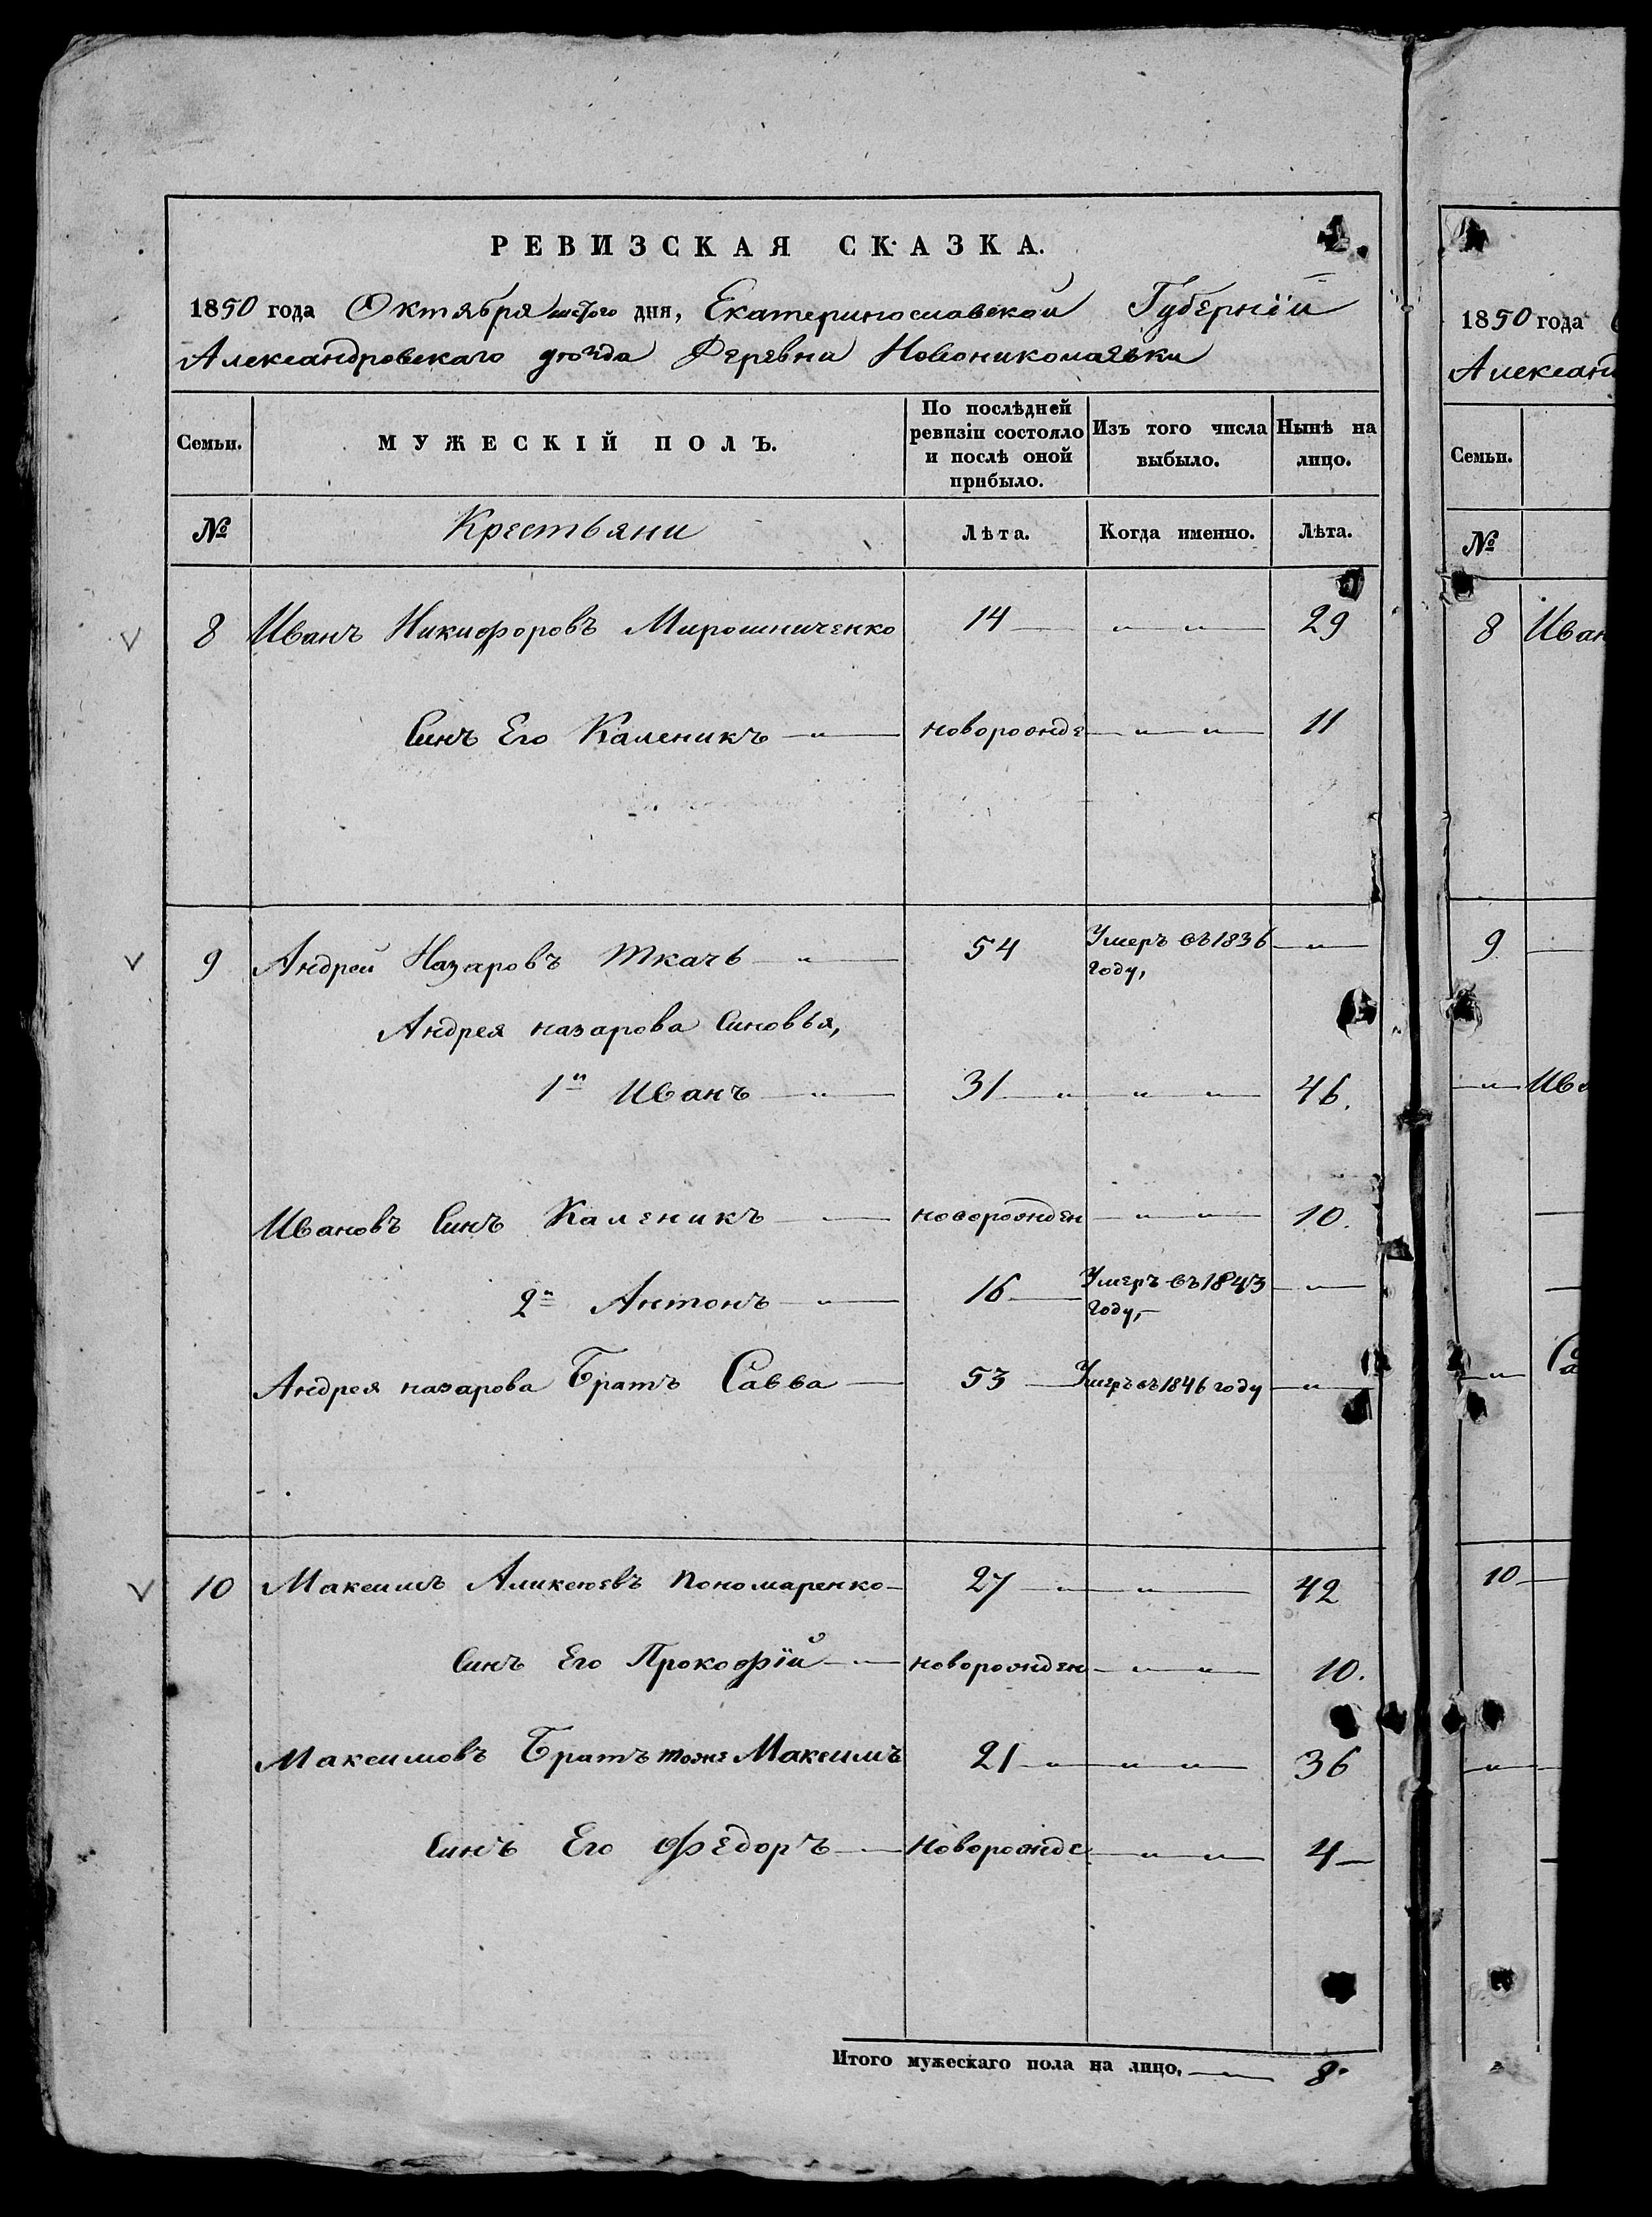 РЕВИЗСКАЯ СКАЗКА.
1850 года Октября шестого дня, Екатеринославской Губерніи
Александровскаго уѣзда Деревни Новониколаевки
Семьи.
МУЖЕСКІЙ ПОЛЪ.
По послѣдней ревизіи состояло и послѣ оной прибыло.
Изъ того числа выбыло.
Нынѣ на лицо.
№ Крестьяни Лѣта. Когда именно. Лѣта.
8 Иванъ Никифоровъ Мирошниченко 14 — „ — „ — 29
Синъ Его Каленикъ — „ — новорожде — „ — „ — 11
9 Андрей Назаровъ Ткачь — „ — 54 Умеръ въ 1836 году, — „ —
Андрея назарова Синовья,
1й Иванъ — „ — 31 — „ — „ — „ — 46.
Ивановъ Синъ Каленикъ — „ — новорожден — „ — „ — 10.
2й Антонъ — „ — 16 — Умеръ въ 1843 году, — — „ —
Андрея назарова Братъ Савва — 53 — Умеръ въ 1846 году — „ —
10 Максимъ Аликсюевъ Пономаренко — 27 — „ — „ — 42
Синъ Его Прокофій — „ — новорожден — „ — „ — 10.
Максимовъ Братъ тоже Максимъ 21 — „ — „ — „ — 36
Синъ Его Федоръ — „ — Новорожде — „ — „ — 4 —
Итого мужескаго пола на лицо, — „ — 8.
1850 года
Александ
Семьи.
№
8 Иван
9 —
— „ — Ива
— „ — Са
10 —
— „ —